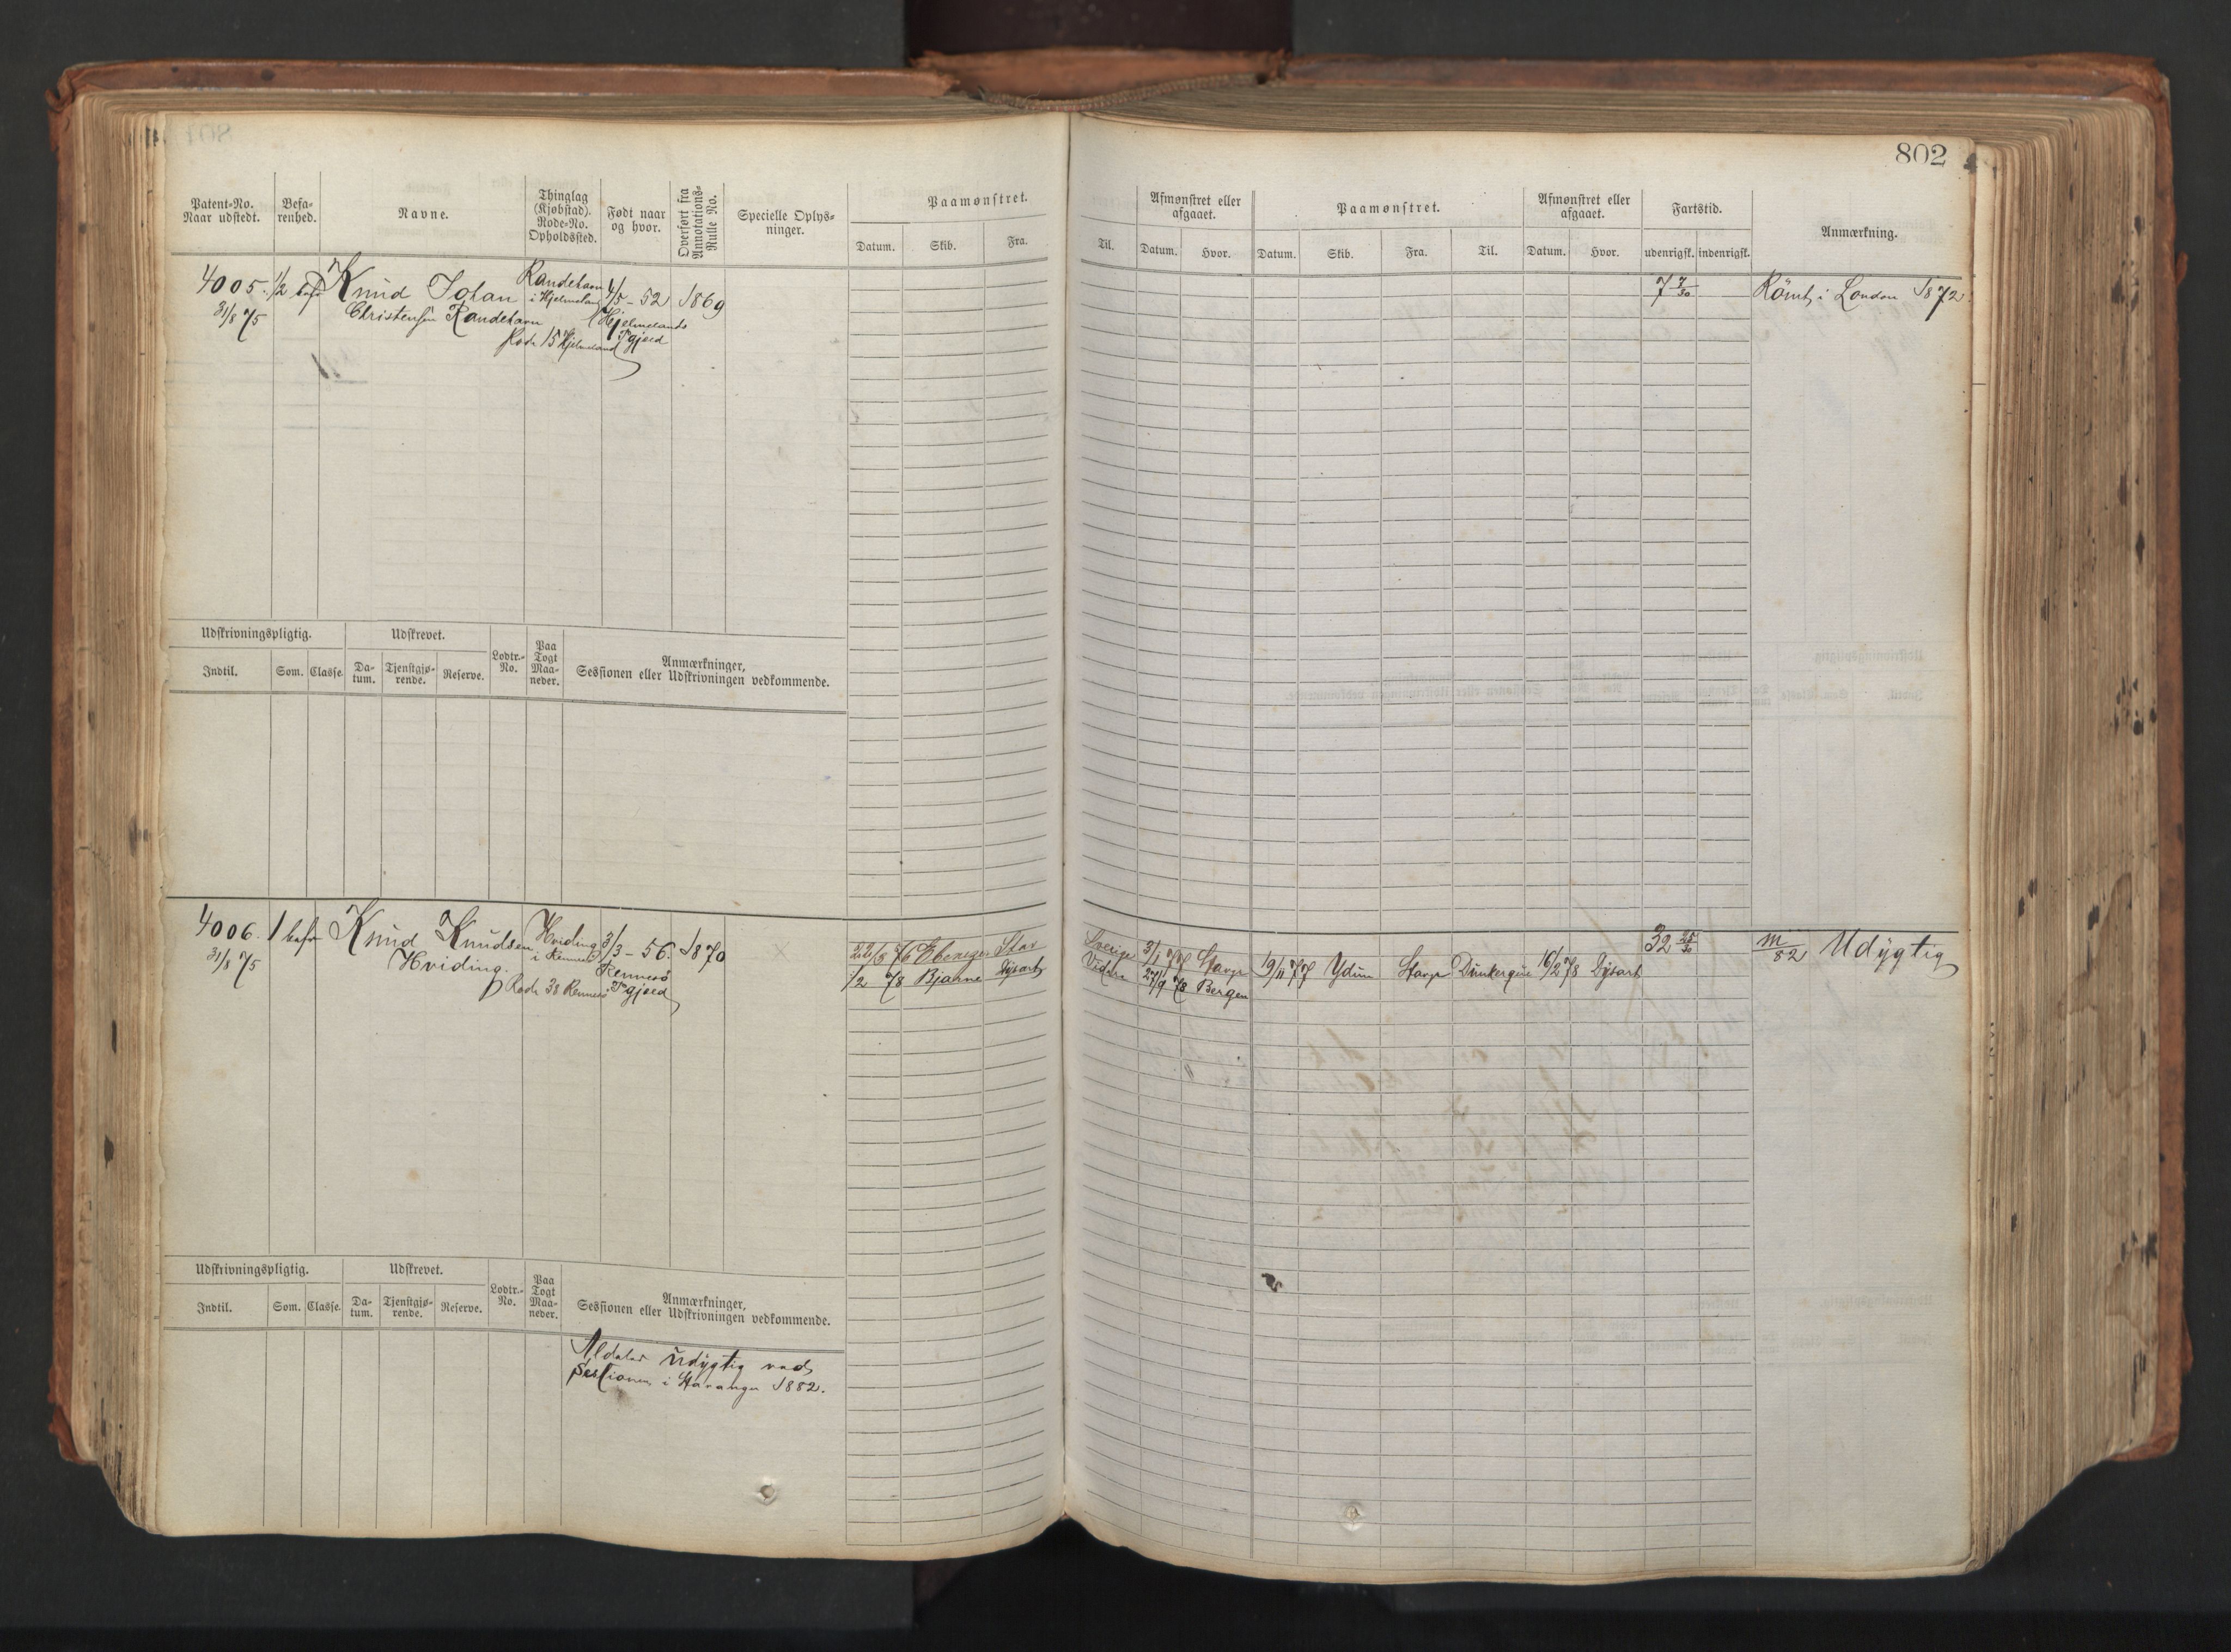 802
Patent-No. Naar udstedt.
Befa-renhed.
Navne.
Thinglag (Kjøbstad). Rode-No. Opholdssted.
Født naar og hvor.
Overført fra Annotations-Rulle No.
Specielle Oplys-ninger.
Paamønstret.
Datum. Skib. Fra.
Til.
Afmønstret eller afgaaet.
Datum. Hvor.
Paamønstret.
Datum. Skib. Fra. Til.
Afmønstret eller afgaaet.
Datum. Hvor.
Fartstid.
udenrigsk. indenrigsk.
Anmærkning.
4005. 1/2 bef Knud Johan Randehavn 4/5 - 52 1869 7 7/30 Römt i London 1872
31/8 75 Christensen Randehavn i Hjelmeland Hjelmelands
Rode 15 Hjelmeland Pgjæld
Udskrivningspligtig. Udskrevet. Lodtr.-No. Paa Togt Maa-neder. Anmærkninger, Sessionen eller Udskrivningen vedkommende.
Indtil. Som. Classe. Da-tum. Tjenstgjø-rende. Reserve.
4006. 1 bef Knud Knudsen Hviding 3/3 - 56. 1870 22/8 76 Ebenezer Stav Sverige 3/1 77 Stavgr 19/11 77 Ydun Stavgr Dunkerque 16/2 78 Dysart 32 25/30 M/82 Udygtig
31/8 75 Hviding. i Rennesø Rennesø 1/2 78 Bjarne Dysart 27/9 78 Bergen
Rode 38 Rennesø Pgjæld
Udskrivningspligtig. Udskrevet. Lodtr.-No. Paa Togt Maa-neder. Anmærkninger, Sessionen eller Udskrivningen vedkommende.
Indtil. Som. Classe. Da-tum. Tjenstgjø-rende. Reserve.
udygtig ved
Sessionen i Stavanger 1882.